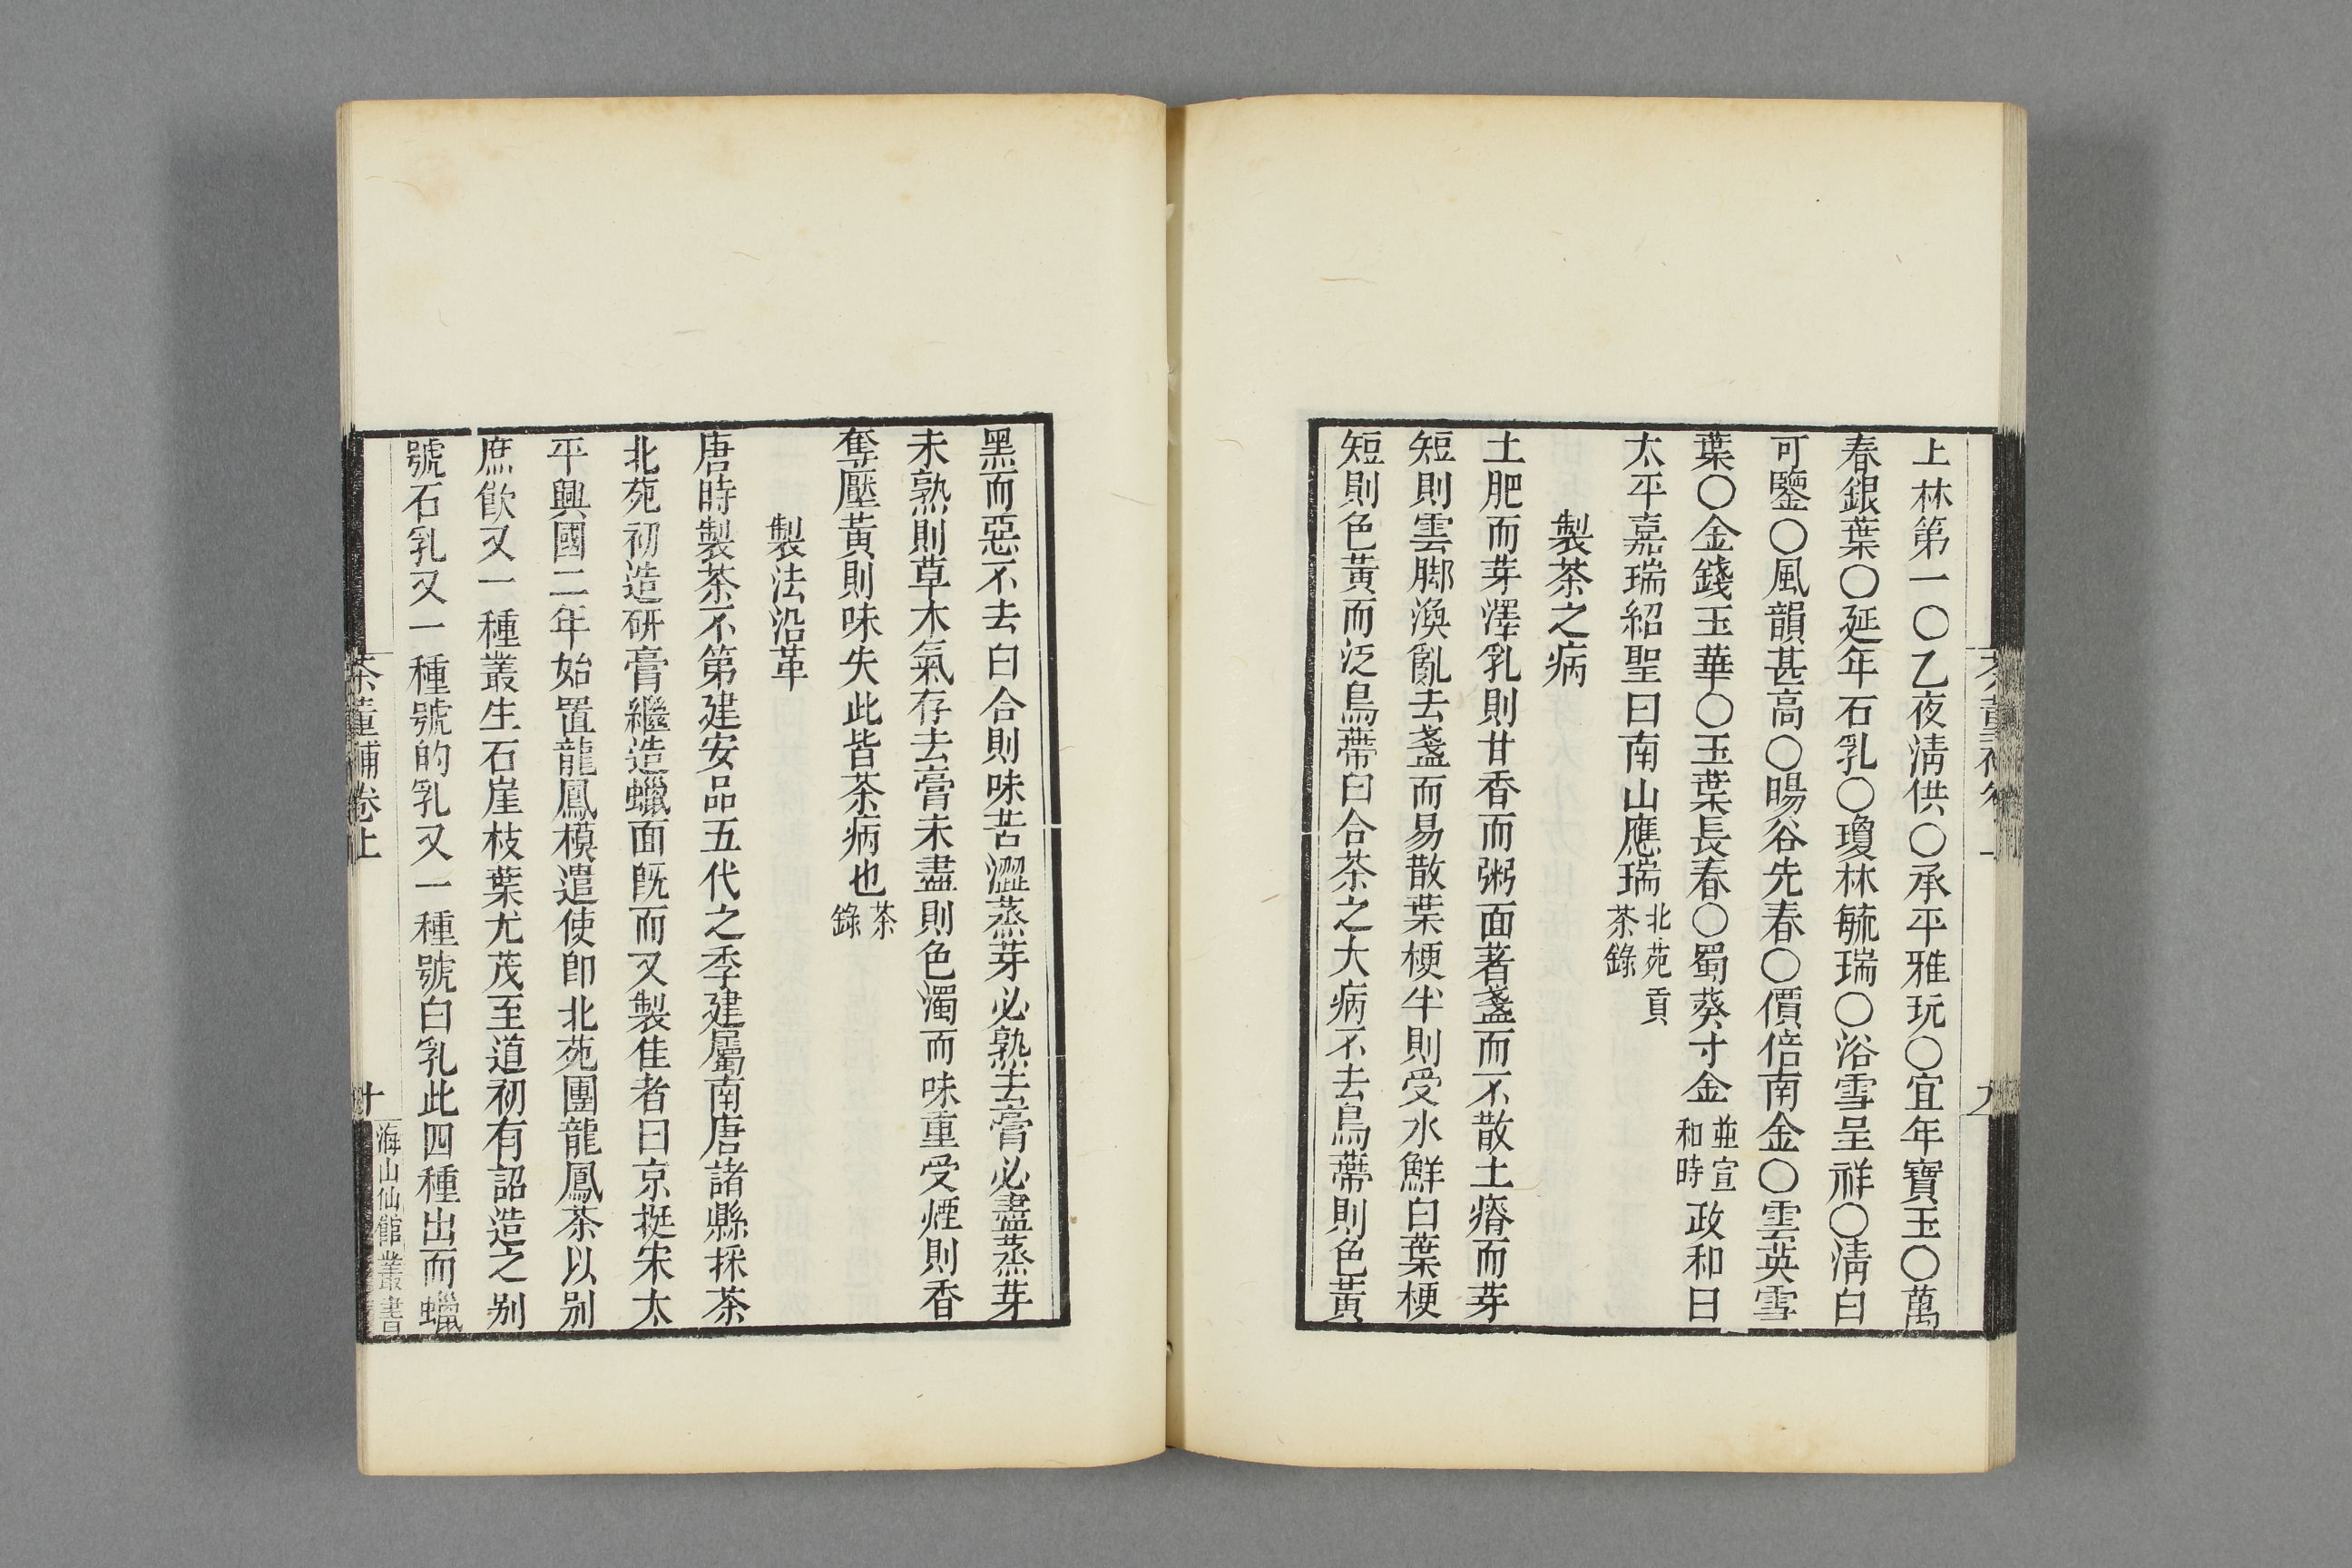 上林第一〇乙夜清供〇承平雅玩〇宜年寶玉〇萬
春銀葉〇延年石乳〇瓊林毓瑞〇浴雪呈祥〇清白
可鑒〇風韻甚高〇暘谷先春〇價倍南金〇雲英雪
葉〇金錢玉華〇玉葉長春〇蜀葵寸金並宣和時政和曰
太平嘉瑞紹聖曰南山應瑞北苑貢茶錄
製茶之病
土肥而芽澤乳則甘香而粥面著盞而不散土瘠而芽
短則雲脚渙亂去盞而易散葉梗半則受水鮮白葉梗
短則色黃而泛烏蔕白合茶之大病不去烏蔕則色黃
黑而惡不去白合則味苦澀蒸芽必熟去膏必盡蒸芽
未熟則草木氣存去膏未盡則色濁而味重受煙則香
奪壓黃則味失此皆茶病也茶錄
製法沿革
唐時製茶不第建安品五代之季建屬南唐諸縣採茶
北苑初造研膏繼造蠟面既而又製佳者曰京挺宋太
平興國二年始置龍鳳模遣使卽北苑團龍鳳茶以別
庶飮又一種叢生石崖枝葉尤茂至道初有詔造之別
號石乳又一種號的乳又一種號白乳此四種出而蠟
茶董補卷上
十
海山仙館叢書